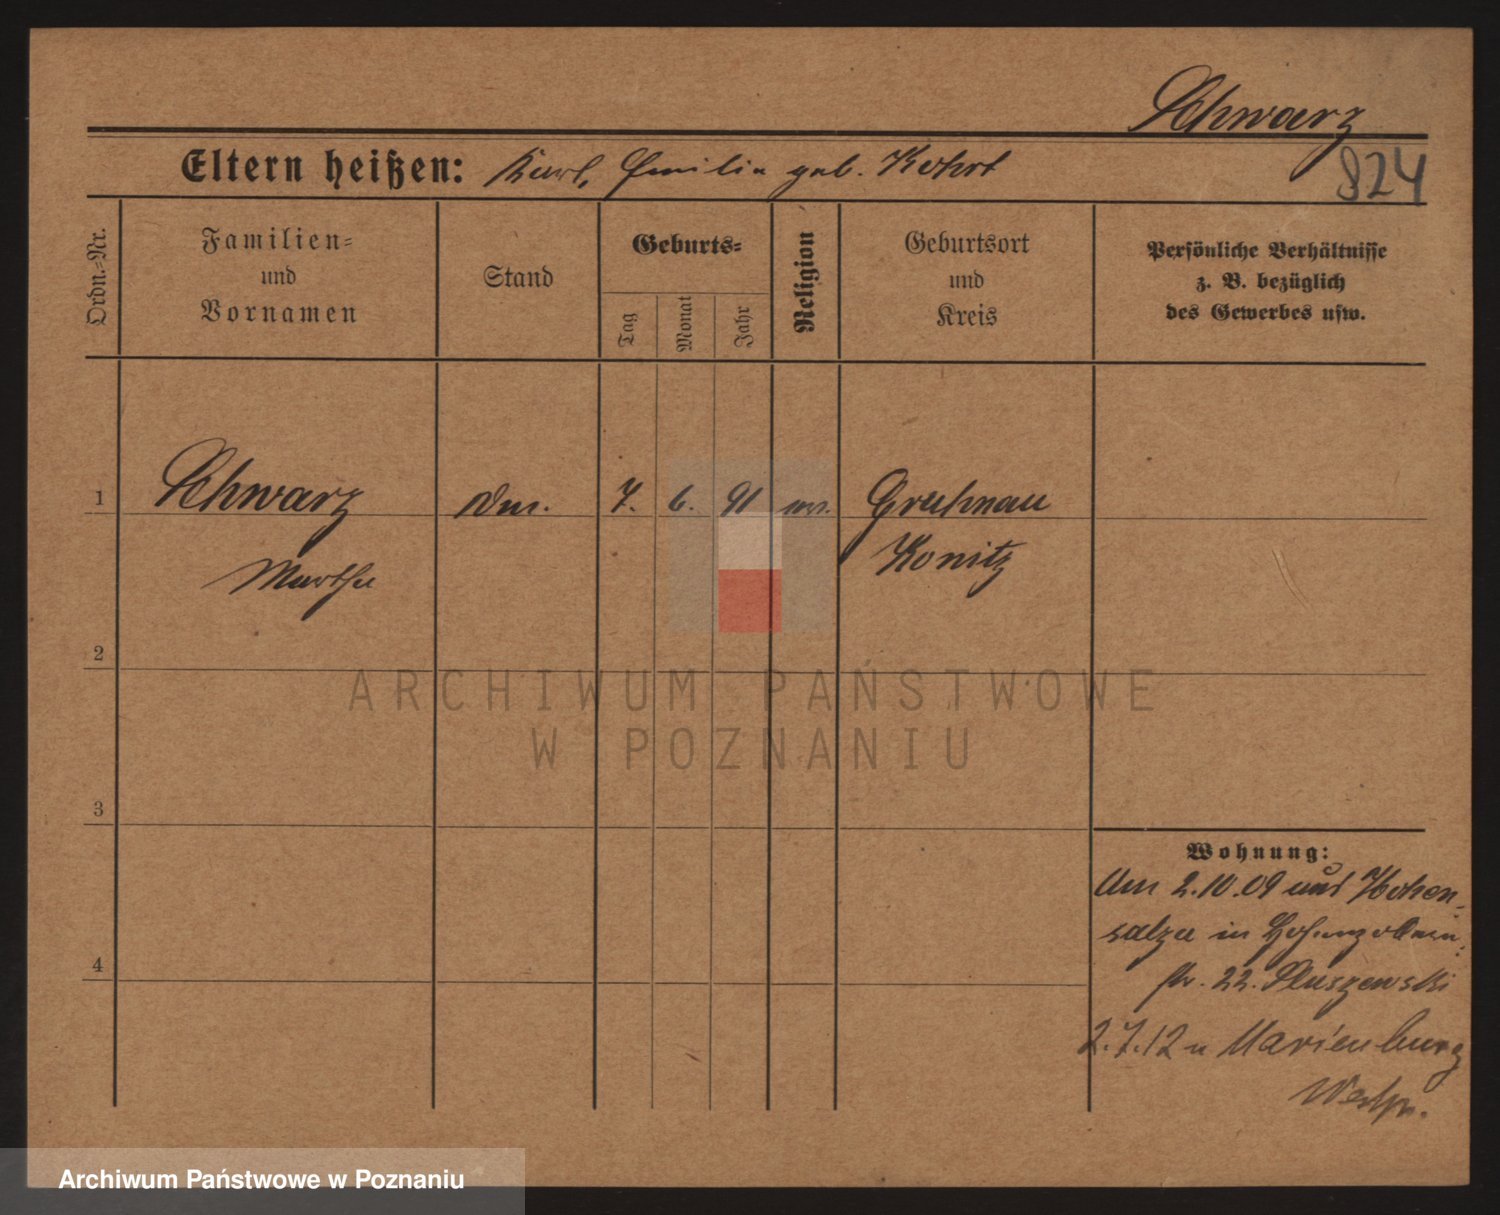 Schwarz
824
Eltern heißen: Karl, Emilie geb. Kohrt
Ordn.-Nr.
Familien-
und
Vornamen
Stand
Geburts-
Tag
Monat
Jahr
Religion
Geburtsort
und
Kreis
Persönliche Verhältnisse
z. B. bezüglich
des Gewerbes usw.
1 Schwarz 7. 6. 91 Gruhnau
Martha Konitz
2
3
4
ARCHIWUM PAŃSTWOWE
W POZNANIU
Wohnung:
Am 2.10.09 Hohen-
salza in Hohenzollern-
str. 22. Sluszewski
2.7.12 n Marienburg
Westpr.
Archiwum Państwowe w Poznaniu